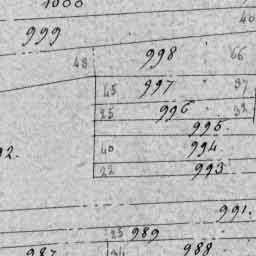 1000
40
999
48 998 66
45 997 97
25 996 32
995.
40 994.
22 993
991.
23 989
987 988